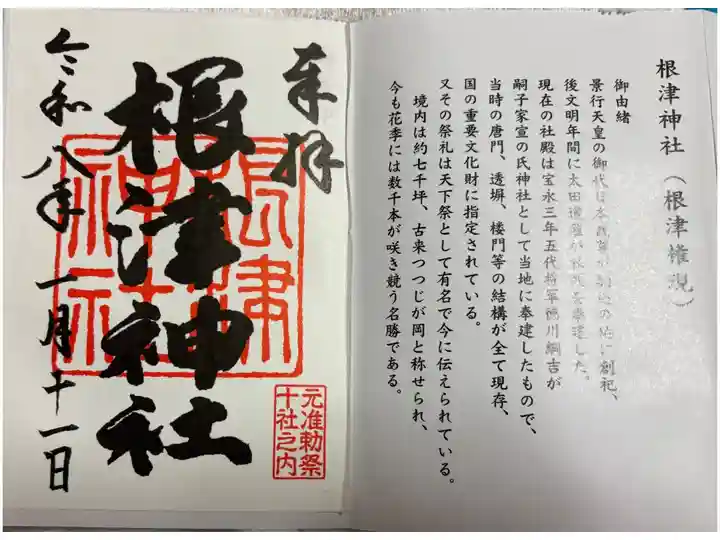 根津神社（根津権現）
御由緒
景行天皇の御代日本武尊が の地に創祀、
後文明年間に太田道灌が社殿を奉建した。
現在の社殿は宝永三年五代将軍徳川綱吉が
嗣子家宣の氏神社として当地に奉建したもので、
当時の唐門、透塀、楼門等の結構が全て現存、
国の重要文化財に指定されている。
又その祭礼は天下祭として有名で今に伝えられている。
境内は約七千坪、古来つつじが岡と称せられ、
今も花季には数千本が咲き競う名勝である。
奉拝
根津神社
根津神社
元准勅祭
十社之内
令和八年 一月十一日